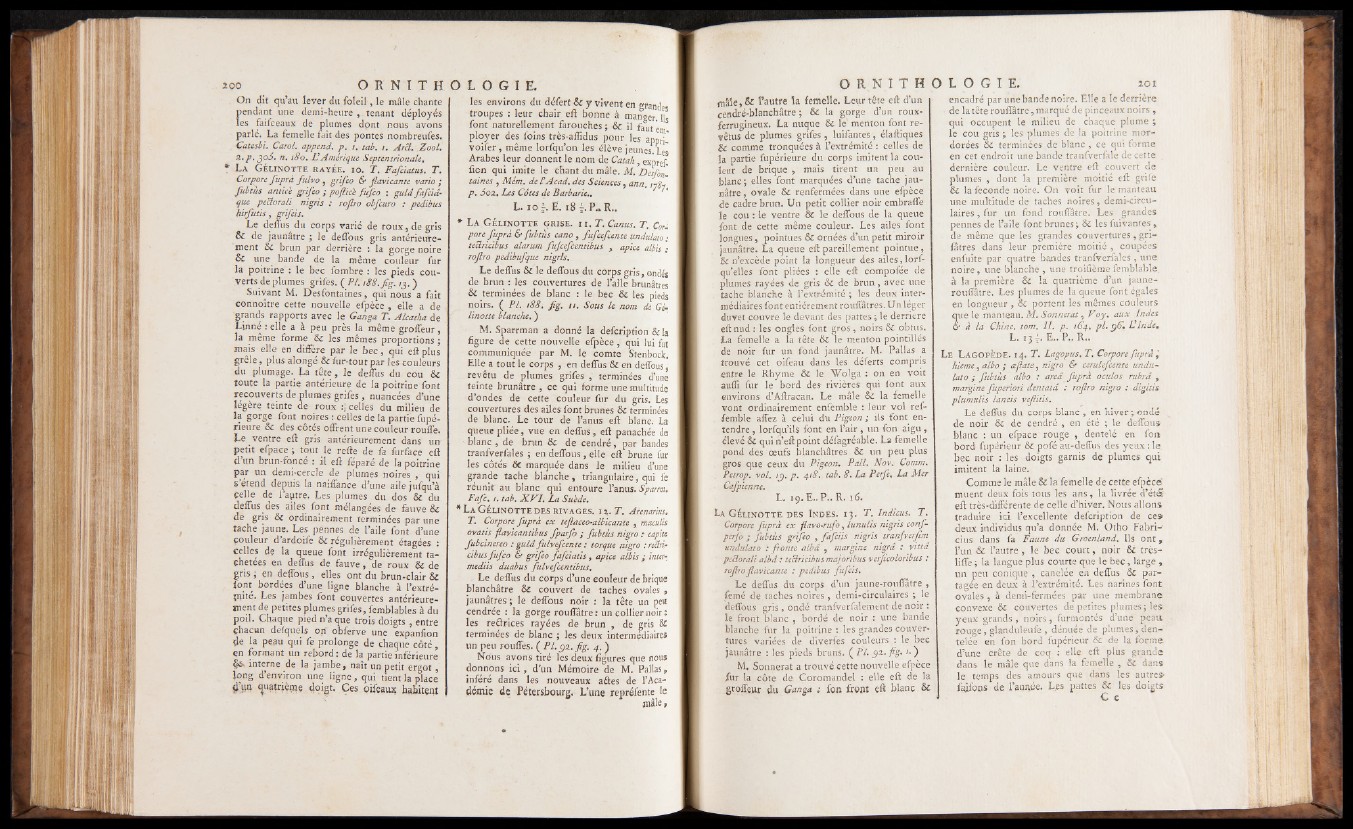 200 ORNITHOLOGIE.
On dit qu'au lever du foleil, le mâle chante
pendant une demi-heure, tenant déployés
les faifceaux de plumes dont nous avons
parlé. La femelle fait des pontes nombreufes.
Catesbi. Carol. append. p. 1. tab. 1. Arct. Zool.
2. p. 306. n. 180. L'Amérique Septentrionale.
* LA GÉLINOTTE RAYÉE. 10. T. Fafciatus. T.
Corpore fuprà fulvo, grifeo & flavicante vario ;
fubtùs anticè grifeo ; pofticè fufco : gulâ fafciâ-
que pectorali nigris : roftro obfcuro : pedibus
hirfutis, grifeis.
Le deffus du corps varié de roux, de gris
& de jaunâtre ; le deffous gris antérieure-
ment & brun par derrière : la gorge noire
& une bande de la même couleur fur
la poitrine : le bec fombre : les pieds cou-
verts de plumes grifes. ( Pl. 188. fig. 13. )
Suivant M. Desfontaines, qui nous a fait
connoître cette nouvelle efpèce, elle a de
grands rapports avec le Ganga T. Alcatha de
Linné : elle a à peu près la même groffeur,
la même forme & les mêmes proportions ;
mais elle en diffère par le bec, qui eft plus
grêle, plus alongé & fur-tout par les couleurs
du plumage. La tête, le deffus du cou &
toute la partie antérieure de la poitrine font
recouverts de plumes grifes, nuancées d'une
légère teinte de roux : celles du milieu de
la gorge font noires : celles de la partie fupé-
rieure & des côtés offrent une couleur rouffe.
Le ventre eft gris antérieurement dans un
petit efpace ; tout le refte de fa furface eft
d'un brun-foncé : il eft féparé de la poitrine
par un demi-cercle de plumes noires, qui
s'étend depuis la naiffance d'une aile jufqu'à
celle de l'autre. Les plumes du dos & du
deffus des ailes font mélangées de fauve &
de gris & ordinairement terminées par une
tache jaune. Les pennes de l'aile font d'une
couleur d'ardoife & régulièrement étagées :
celles de la queue font irrégulièrement ta-
chetées en deffus de fauve, de roux & de
gris ; en deffous, elles ont du brun-clair &
font bordées d'une ligne blanche à l'extré-
mité. Les jambes font couvertes antérieure-
ment de petites plumes grifes, femblables à du
poil. Chaque pied n'a que trois doigts, entre
chacun defquels on obferve une expanfion
de la peau qui fe prolonge de chaque côté,
en formant un rebord : de la partie inférieure
& interne de la jambe, naît un petit ergot,
long d'environ une ligne, qui tient la place
d'un quatrième doigt. Ces oifeaux habitent
les environs du défert & y vivent en grandes
troupes : leur chair eft bonne à manger. Ils
font naturellement farouches ; & il faut em-
ployer des foins très-affidus pour les appri-
voifer, même lorfqu'on les élève jeunes. Les
Arabes leur donnent le nom de Catah, expref-
fion qui imite le chant du mâle. M. Desfon-
taines, Mém. de l'Acad. des Sciences, ann. 1787,
p. 502. Les Côtes de Barbarie.
L. 10 ½. E. 18 ½. P.. R..
* LA GÉLINOTTE GRISE. 11. T. Canus. T. Cor-
pore fuprà & fubtùs cano, fufcefcente undulato ;
tectricibus alarum fufcefcentibus, apice albis :
roftro pedibufque nigris.
Le deffus & le deffous du corps gris, ondés
de brun : les couvertures de l'aile brunâtres
& terminées de blanc : le bec & les pieds
noirs. ( Pl. 188. fig. 11. Sous le nom de Gé-
linotte blanche. )
M. Sparrman a donné la defcription & la
figure de cette nouvelle efpèce, qui lui fut
communiquée par M. le comte Stenbock.
Elle a tout le corps, en deffus & en deffous,
revêtu de plumes grifes, terminées d'une
teinte brunâtre, ce qui forme une multitude
d'ondes de cette couleur fur du gris. Les
couvertures des ailes font brunes & terminées
de blanc. Le tour de l'anus eft blanc. La
queue pliée, vue en deffus, eft panachée de
blanc, de brun & de cendré, par bandes
tranfverfales ; en deffous, elle eft brune fur
les côtés & marquée dans le milieu d'une
grande tache blanche, triangulaire, qui fe
réunit au blanc qui entoure l'anus. Sparrm.
Fafc. 1. tab. XVI. La Suède.
* LA GÉLINOTTE DES RIVAGES. 12. T. Arenarius.
T. Corpore fuprà ex teftaceo-albicante, maculis
ovatis flavicantibus fparfo ; fubtùs nigro : capite
fubcinereo : gulâ fulvefcente : torque nigro : rectri-
cibus fufco & grifeo fafciatis, apice albis ; inter-
mediis duabus fulvefcentibus.
Le deffus du corps d'une couleur de brique
blanchâtre & couvert de taches ovales,
jaunâtres ; le deffous noir : la tête un peu
cendrée : la gorge rouffâtre : un collier noir :
les rectrices rayées de brun, de gris &
terminées de blanc ; les deux intermédiaires
un peu rouffes. ( Pl. 92. fig. 4. )
Nous avons tiré les deux figures que nous
donnons ici, d'un Mémoire de M. Pallas,
inféré dans les nouveaux actes de l'Aca-
démie de Pétersbourg. L'une repréfente le
mâle,
ORNITHOLOGIE. 201
mâle, & l'autre la femelle. Leur tête eft d'un
cendré-blanchâtre ; & la gorge d'un roux-
ferrugineux. La nuque & le menton font re-
vêtus de plumes grifes, luifantes, élaftiques
& comme tronquées à l'extrémité : celles de
la partie fupérieure du corps imitent la cou-
leur de brique, mais tirent un peu au
blanc ; elles font marquées d'une tache jau-
nâtre, ovale & renfermées dans une efpèce
de cadre brun. Un petit collier noir embraffe
le cou : le ventre & le deffous de la queue
font de cette même couleur. Les ailes font
longues, pointues & ornées d'un petit miroir
jaunâtre. La queue eft pareillement pointue,
& n'excède point la longueur des ailes, lorf-
qu'elles font pliées : elle eft compofée de
plumes rayées de gris & de brun, avec une
tache blanche à l'extrémité ; les deux inter-
médiaires font entièrement rouffâtres. Un léger
duvet couvre le devant des pattes ; le derrière
eft nud : les ongles font gros, noirs & obtus.
La femelle a la tête & le menton pointillés
de noir fur un fond jaunâtre. M. Pallas a
trouvé cet oifeau dans les déferts compris
entre le Rhyme & le Wolga : on en voit
auffi fur le bord des rivières qui font aux
environs d'Aftracan. Le mâle & la femelle
vont ordinairement enfemble : leur vol ref-
femble affez à celui du Pigeon ; ils font en-
tendre, lorfqu'ils font en l'air, un fon aigu,
élevé & qui n'eft point défagréable. La femelle
pond des œufs blanchâtres & un peu plus
gros que ceux du Pigeon. Pall. Nov. Comm.
Petrop. vol. 19. p. 418. tab. 8. La Perfe. La Mer
Cafpienne.
L. 19. E.. P.. R. 16.
LA GÉLINOTTE DES INDES. 13. T. Indicus. T.
Corpore fuprà ex flavo-rufo, lunulis nigris conf-
perfo ; fubtùs grifeo, fafciis nigris tranfverfim
undulato : fronte albâ, margine nigrâ : vittâ
pectorali albâ : tectricibus majoribus verficoloribus :
roftro flavicante : pedibus fufcis.
Le deffus du corps d'un jaune-rouffâtre,
femé de taches noires, demi-circulaires ; le
deffous gris, ondé tranfverfalement de noir :
le front blanc, bordé de noir : une bande
blanche fur la poitrine : les grandes couver-
tures variées de diverfes couleurs : le bec
jaunâtre : les pieds bruns. ( Pl. 92. fig. 1. )
M. Sonnerat a trouvé cette nouvelle efpèce
fur la côte de Coromandel : elle eft de la
groffeur du Ganga : fon front eft blanc &
encadré par une bande noire. Elle a le derrière
de la tête rouffâtre, marqué de pinceaux noirs,
qui occupent le milieu de chaque plume ;
le cou gris ; les plumes de la poitrine mor-
dorées & terminées de blanc, ce qui forme
en cet endroit une bande tranfverfale de cette
dernière couleur. Le ventre eft couvert de
plumes, dont la première moitié eft grife
& la feconde noire. On voit fur le manteau
une multitude de taches noires, demi-circu-
laires, fur un fond rouffâtre. Les grandes
pennes de l'aile font brunes ; & les fuivantes,
de même que les grandes couvertures, gri-
fâtres dans leur première moitié, coupées
enfuite par quatre bandes tranfverfales, une
noire, une blanche, une troifième femblable
à la première & la quatrième d'un jaune-
rouffâtre. Les plumes de la queue font égales
en longueur, & portent les mêmes couleurs
que le manteau. M. Sonnerat, Voy. aux Indes
& à la Chine. tom. II. p. 164. pl. 96. L'Inde.
L. 13 ½. E.. P.. R..
LE LAGOPÈDE. 14. T. Lagopus. T. Corpore fuprà,
hieme, albo ; æftate, nigro & cerulefcente undu-
lato ; fubtùs albo : areâ fuprà oculos rubrâ,
margine fuperiori dentatâ : roftro nigro : digitis
plumulis laneis veftitis.
Le deffus du corps blanc, en hiver ; ondé
de noir & de cendré, en été ; le deffous
blanc : un efpace rouge, dentelé en fon
bord fupérieur & pofé au-deffus des yeux : le
bec noir : les doigts garnis de plumes qui
imitent la laine.
Comme le mâle & la femelle de cette efpèce
muent deux fois tous les ans, la livrée d'été
eft très-différente de celle d'hiver. Nous allons
traduire ici l'excellente defcription de ces
deux individus qu'a donnée M. Otho Fabri-
cius dans fa Faune du Groenland. Ils ont,
l'un & l'autre, le bec court, noir & très-
liffe ; la langue plus courte que le bec, large,
un peu conique, canelée en deffus & par-
tagée en deux à l'extrémité. Les narines font
ovales, à demi-fermées par une membrane
convexe & couvertes de petites plumes ; les
yeux grands, noirs, furmontés d'une peau
rouge, glanduleufe, dénuée de plumes, den-
telée en fon bord fupérieur & de la forme
d'une crête de coq : elle eft plus grande
dans le mâle que dans la femelle, & dans
le temps des amours que dans les autres
faifons de l'année. Les pattes & les doigts
C c